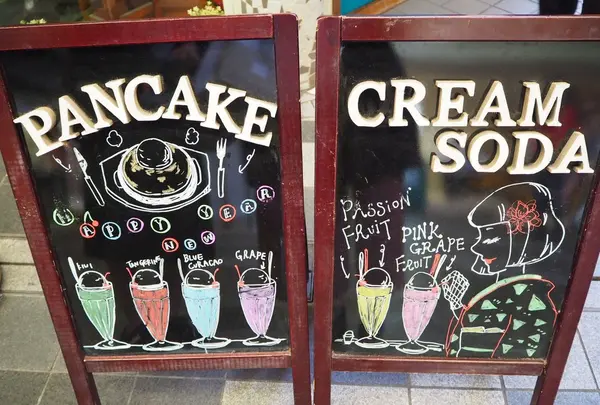 PANCAKE
HAPPY YEAR
NEW
KIWI
TANGERINE
BLUE
CURACAO
GRAPE
CREAM
SODA
PASSION
FRUIT
PINK
GRAPE
FRUIT